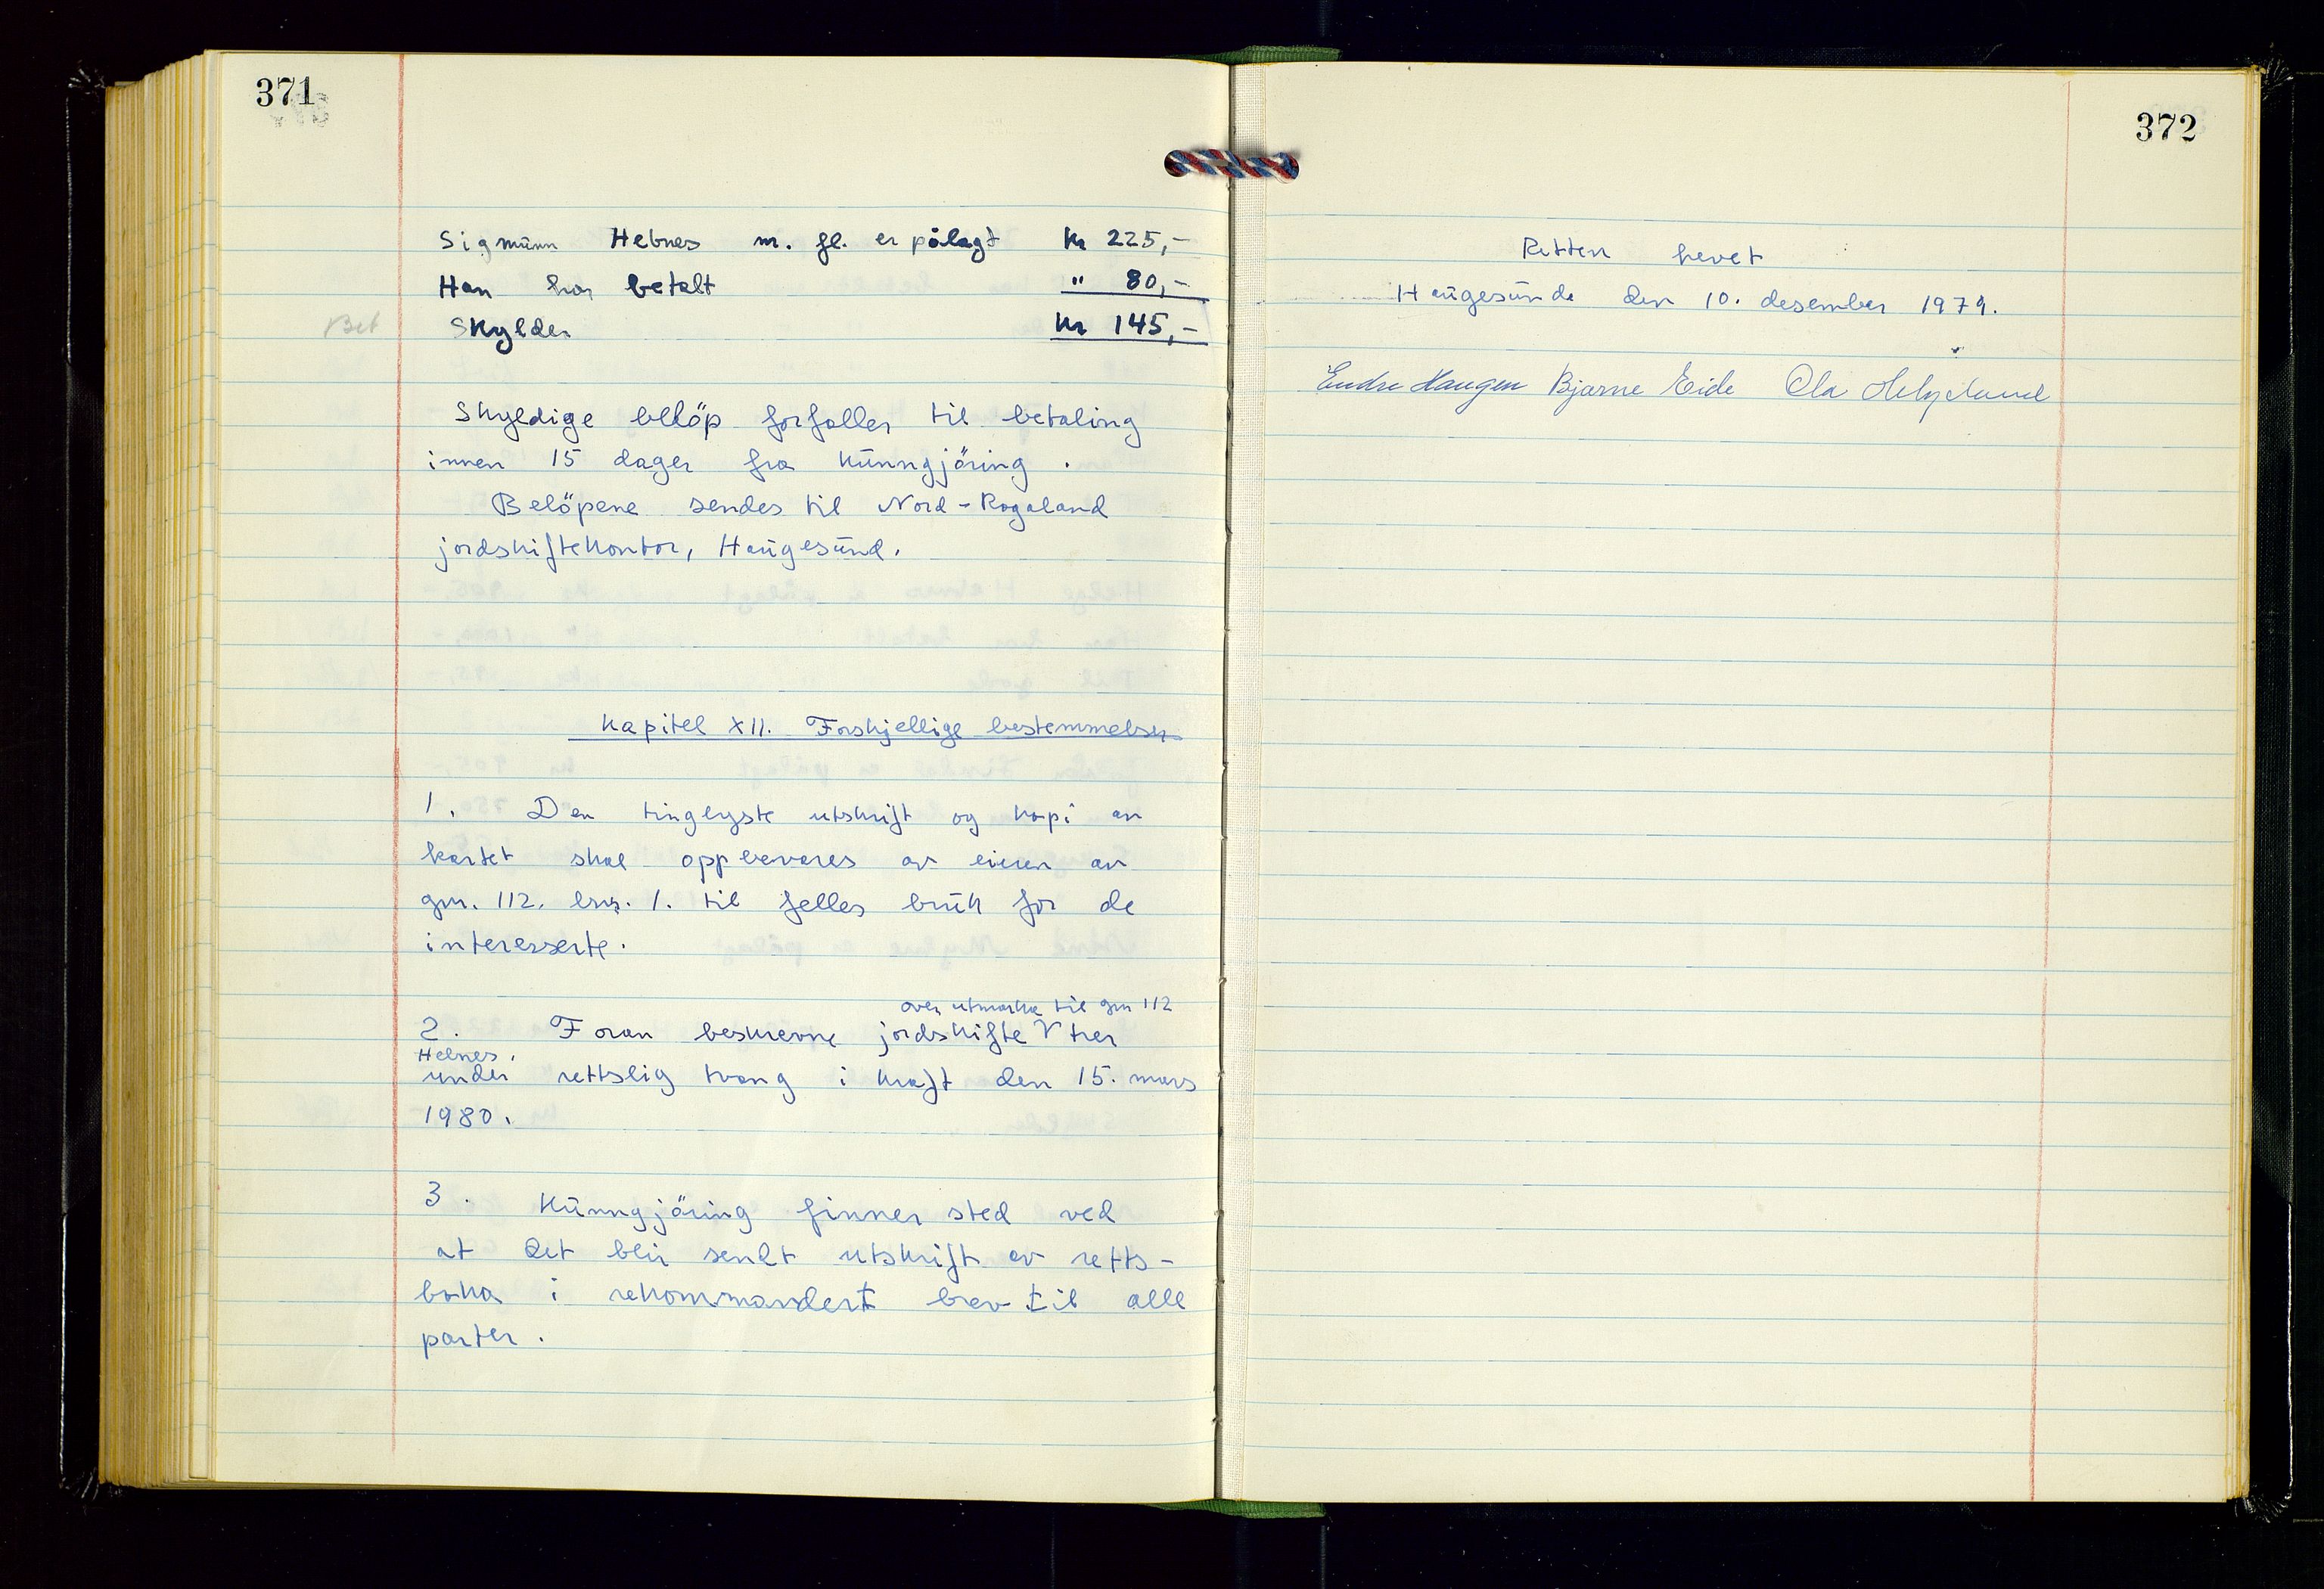 371
Sigmunn Hebnes m. fl. er pålagt kr 225,-
Han har betalt " 80,-
Bet Skylder kr 145,-
Skyldige beløp forfaller til betaling
innen 15 dager fra kunngjöring.
Belöpene sendes til Nord-Rogaland
jordskiftekontor, Haugesund.
Kapitel XII. Forskjellige bestemmelser
1. Den tinglyste utskrift og kopi av
kartet skal oppbevares av eieren av
gnr. 112. bnr. 1. til felles bruk for de
interesserte.
over utmarka til gnr 112
2. Foran beskrevne jordskifte V trer
Hebnes.
under rettslig tvang i kraft den 15. mars
1980.
3. Kunngjöring finner sted ved
at det blir sendt utskrift av retts-
boka i rekommandert brev til alle
parter.
372
Retten hevet
Haugesund den 10. desember 1979.
Endre Haugen Bjarne Eide Ola